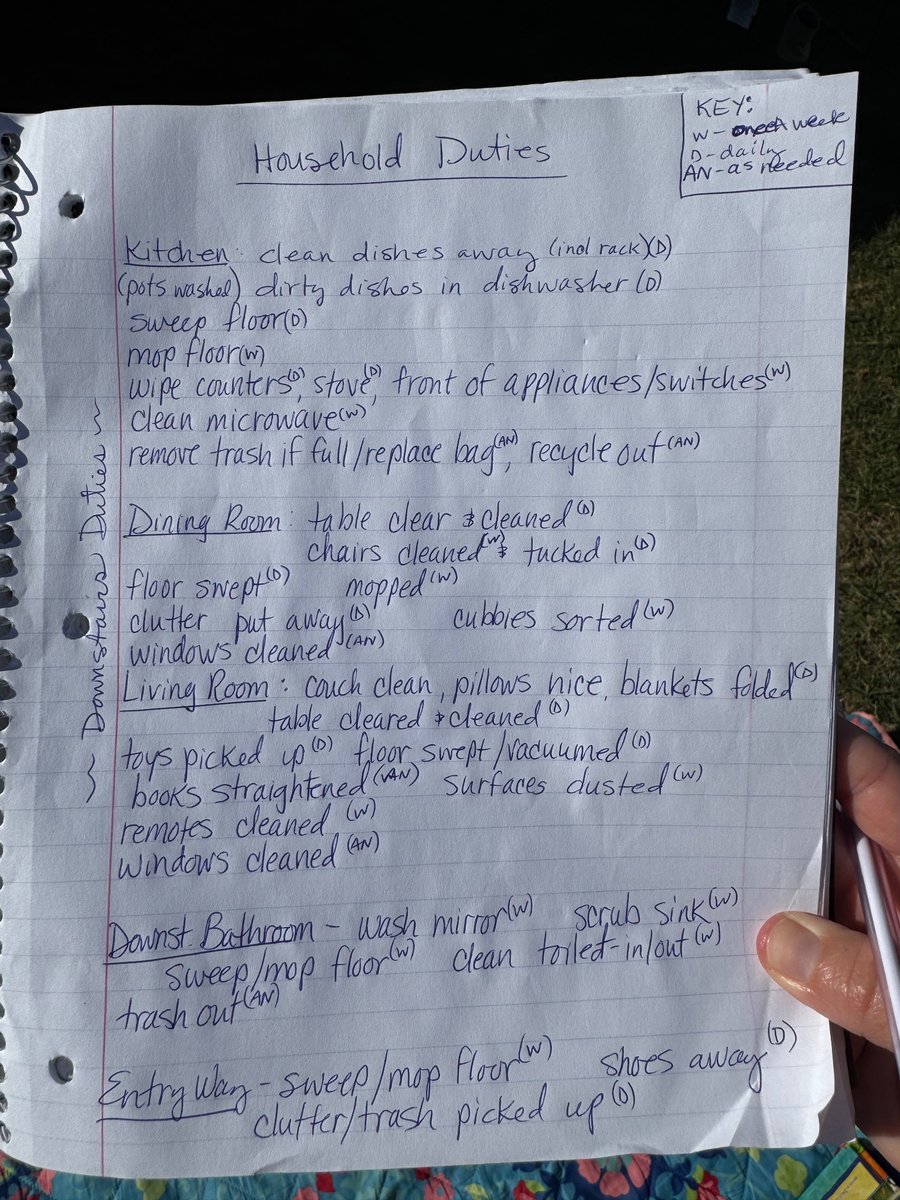 Household Duties
KEY:
W - once a week
D - daily
AN - as needed
~ Downstairs Duties ~
Kitchen: clean dishes away (incl rack)(D)
(pots washed) dirty dishes in dishwasher (D)
sweep floor (D)
mop floor (W)
wipe counters (D), stove (D), front of appliances/switches (W)
clean microwave (W)
remove trash if full/replace bag (AN), recycle out (AN)
Dining Room: table clear & cleaned (D)
chairs cleaned (W) & tucked in (D)
floor swept (D) mopped (W)
clutter put away (D) cubbies sorted (W)
windows cleaned (AN)
Living Room: couch clean, pillows nice, blankets folded (D)
table cleared & cleaned (D)
toys picked up (D) floor swept/vacuumed (D)
books straightened (AN) surfaces dusted (W)
remotes cleaned (W)
windows cleaned (AN)
Downst. Bathroom - wash mirror (W) scrub sink (W)
sweep/mop floor (W) clean toilet-in/out (W)
trash out (AN)
Entry Way - sweep/mop floor (W) shoes away (D)
clutter/trash picked up (D)